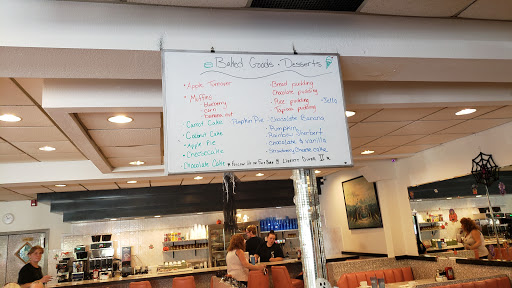 Baked Goods · Desserts
· Apple Turnover
· Muffins
blueberry
corn
banana nut
· Carrot Cake
· Coconut Cake
· Apple Pie
· Cheesecake
· Chocolate Cake
Pumpkin Pie
· Bread pudding
Chocolate pudding
· Rice pudding
· Tapioca pudding
· Jello
· Chocolate Banana
· Pumpkin
· Rainbow Sherbert
· Chocolate & vanilla
· Strawberry Cheesecake
Follow Us on FaceBook @ Liberty Diner II